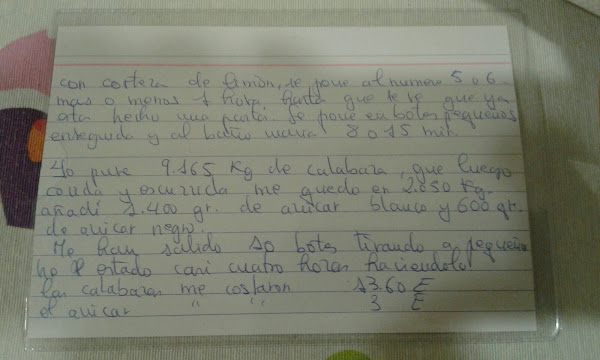 con corteza de limón, se pone al numero 5 o 6
mas o menos 1 hora, hasta que se ve que ya
esta hecho una pasta. Se pone en botes pequeños
enseguida y al baño maria 8 o 15 min.
Yo puse 9.165 Kg de calabaza, que luego
cocida y escurrida me quedo en 2.650 Kg.
añadi 1.400 gr. de azucar blanco y 600 gr.
de azucar negro.
Me han salido 10 botes tirando a pequeños
he estado casi cuatro horas haciendolo.
las calabazas me costaron 13.60 €
el azucar " " 3 €